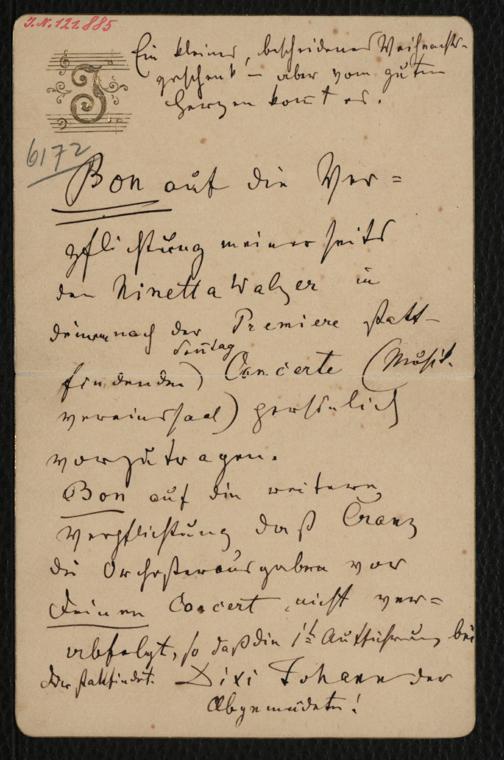 J.N. 121.885
J
Ein kleines, bescheidenes Weihnachts-
geschenk – aber vom guten
Herzen kom̄t es.
6172
Bon auf die Ver=
pflichtung meinerseits
den Ninetta Walzer in
deinem nach der Premiere statt-
findenden) Sonntag Concerte (Musik-
vereinssaal) persönlich
vorzutragen.
Bon auf die weitere
Verpflichtung daß Cranz
die Orchesterausgaben vor
Deinem Concert nicht ver=
abfolgt, so daß die 1te Aufführung bei
stattfindet. Dixi Johann der
Abgemüdete!